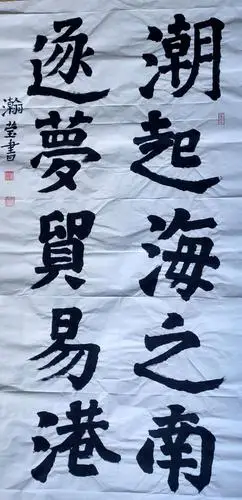 潮起海之南
逐夢貿易港
瀚莹書